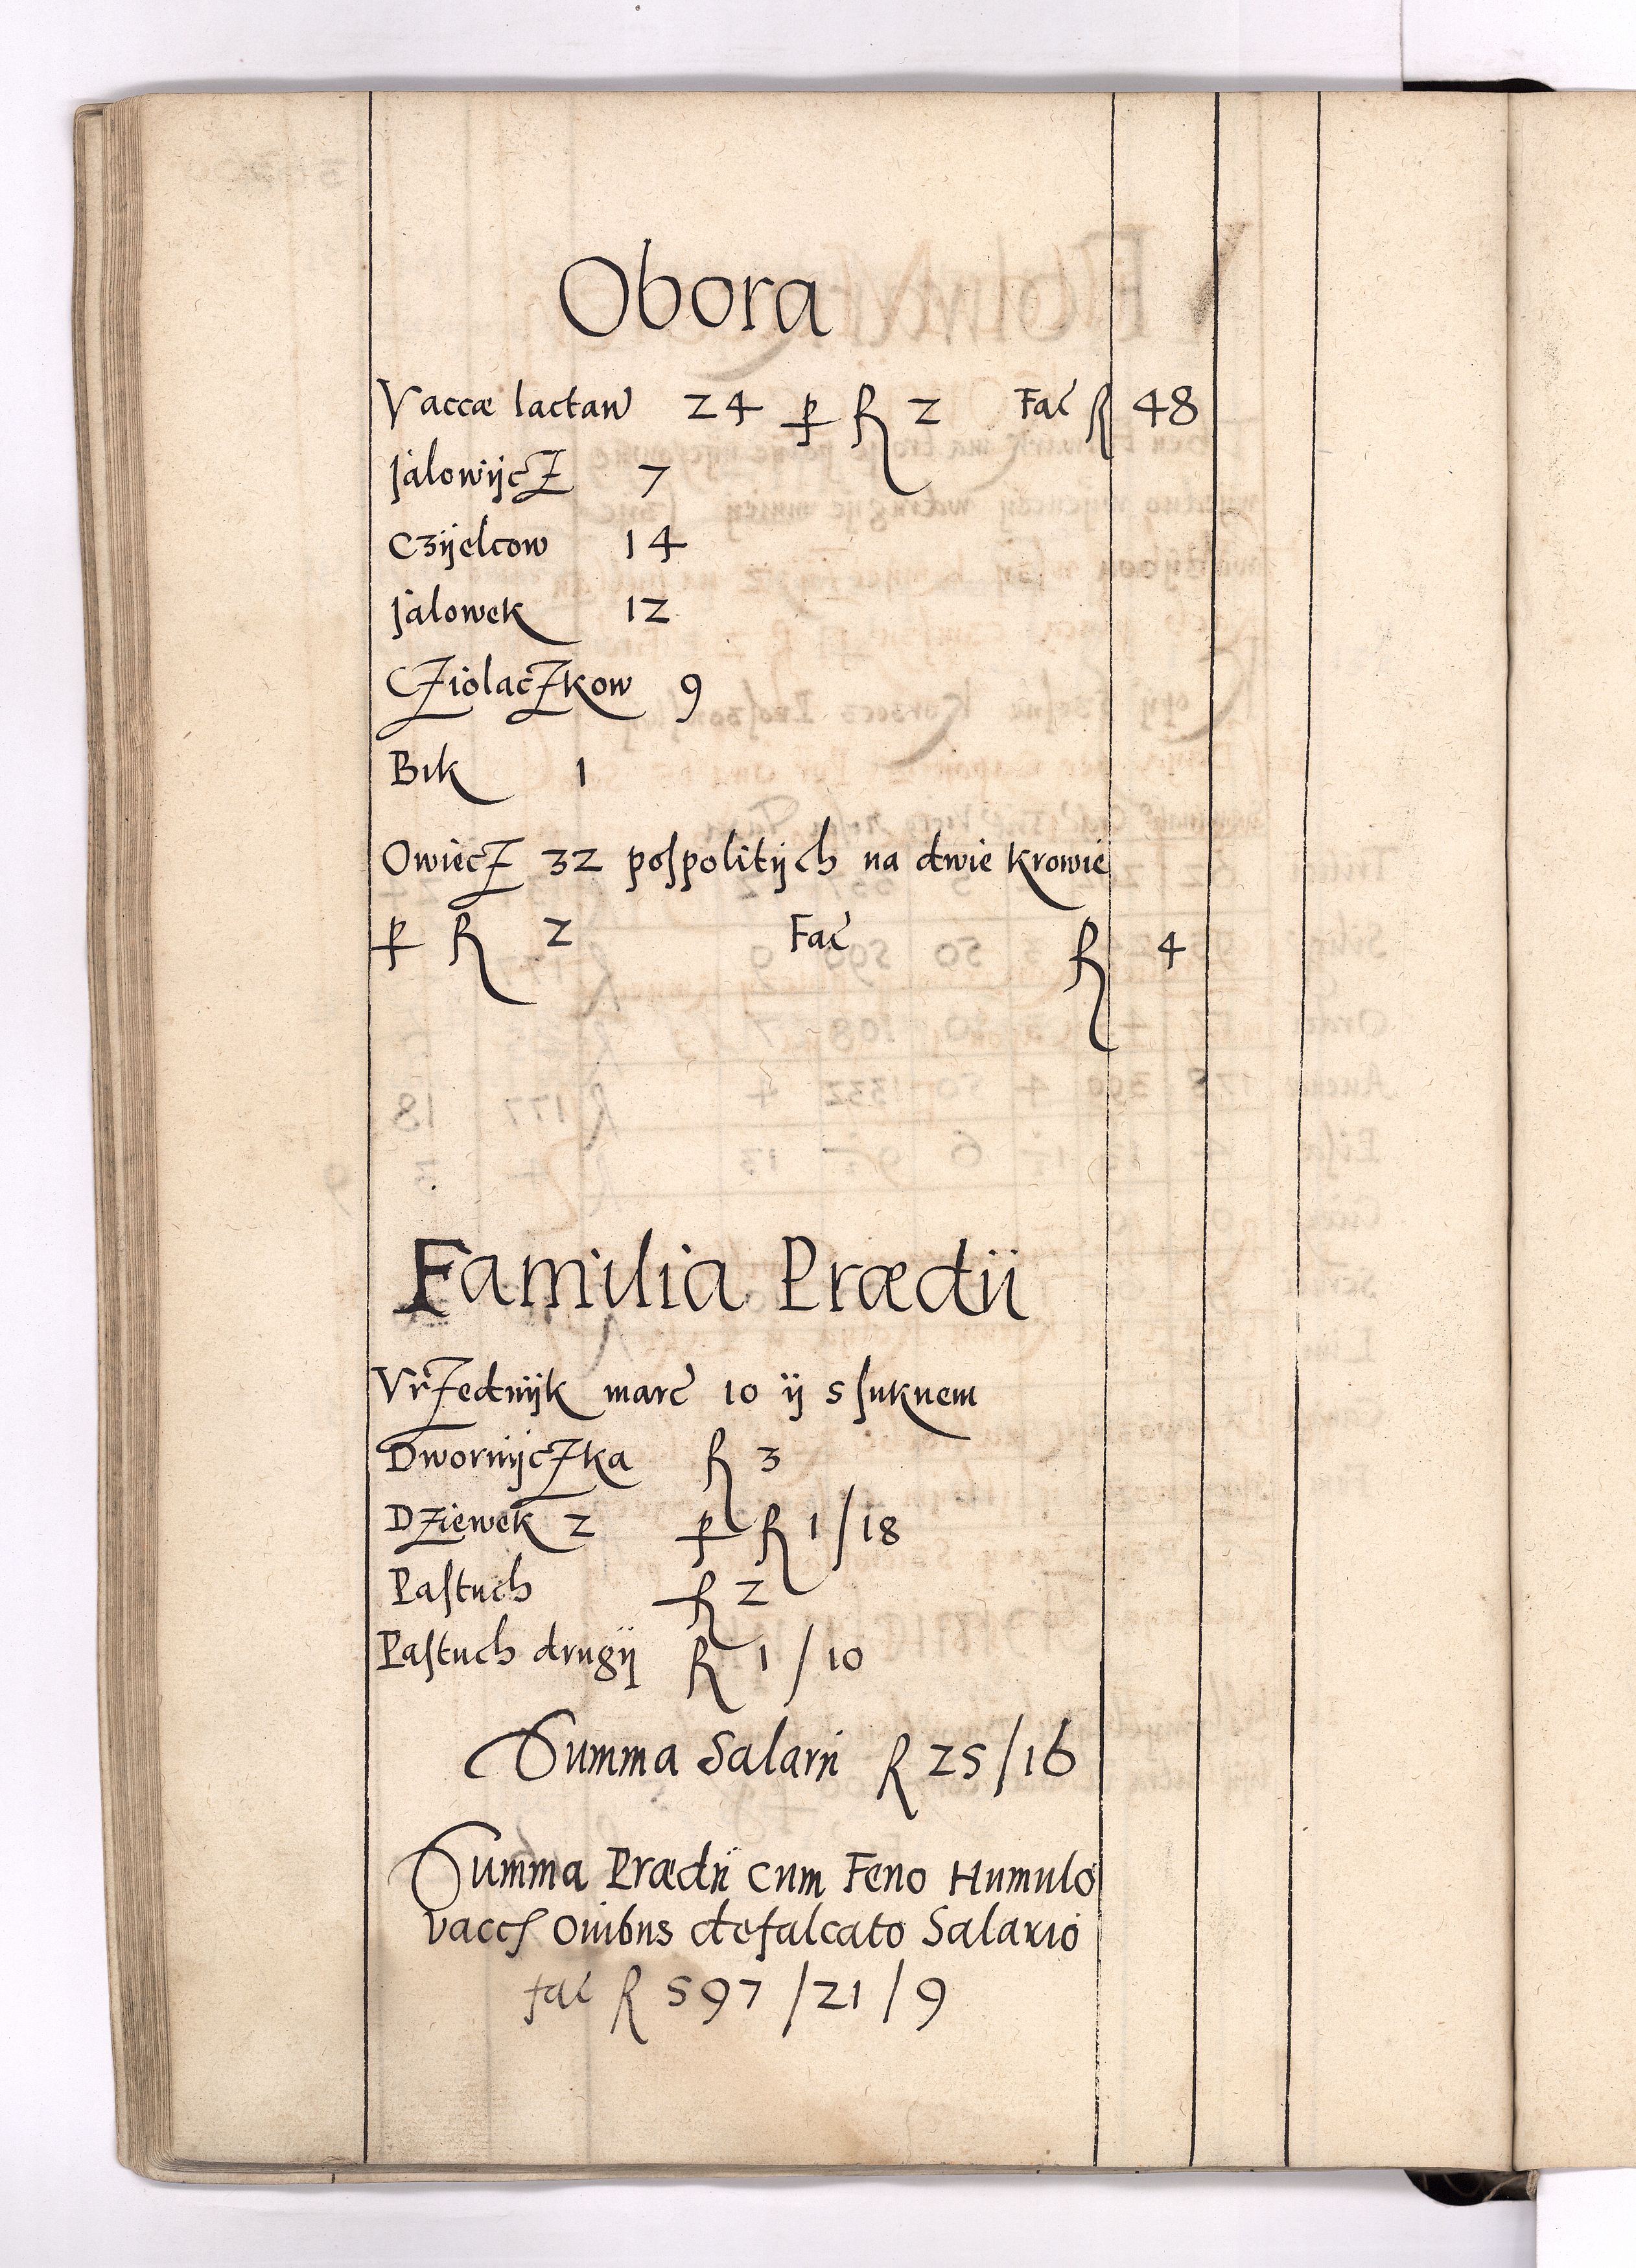 Obora
Vaccæ lactan 24 p R 2 Fac R 48
Jalowijcz 7
Czijelcow 14
Jalowek 12
Cziolaczkow 9
Bik 1
Owiecz 32 pospolitijch na dwie krowie
p R 2 Fac R 4
Familia Prædii
Vrzednijk marc 10 ij s suknem
Dwornijczka R 3
Dziewek 2 p R 1/18
Pastuch R 2
Pastuch drugij R 1/10
Summa Salarii R 25/16
Summa Prædii cum Feno Humulo
vaccs ovibus defalcato Salario
fac R 597/21/9